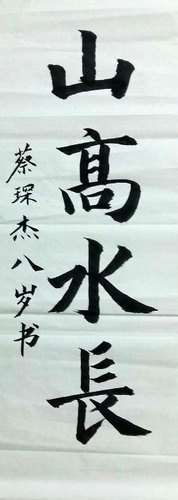 山髙水長
蔡琛杰八岁书